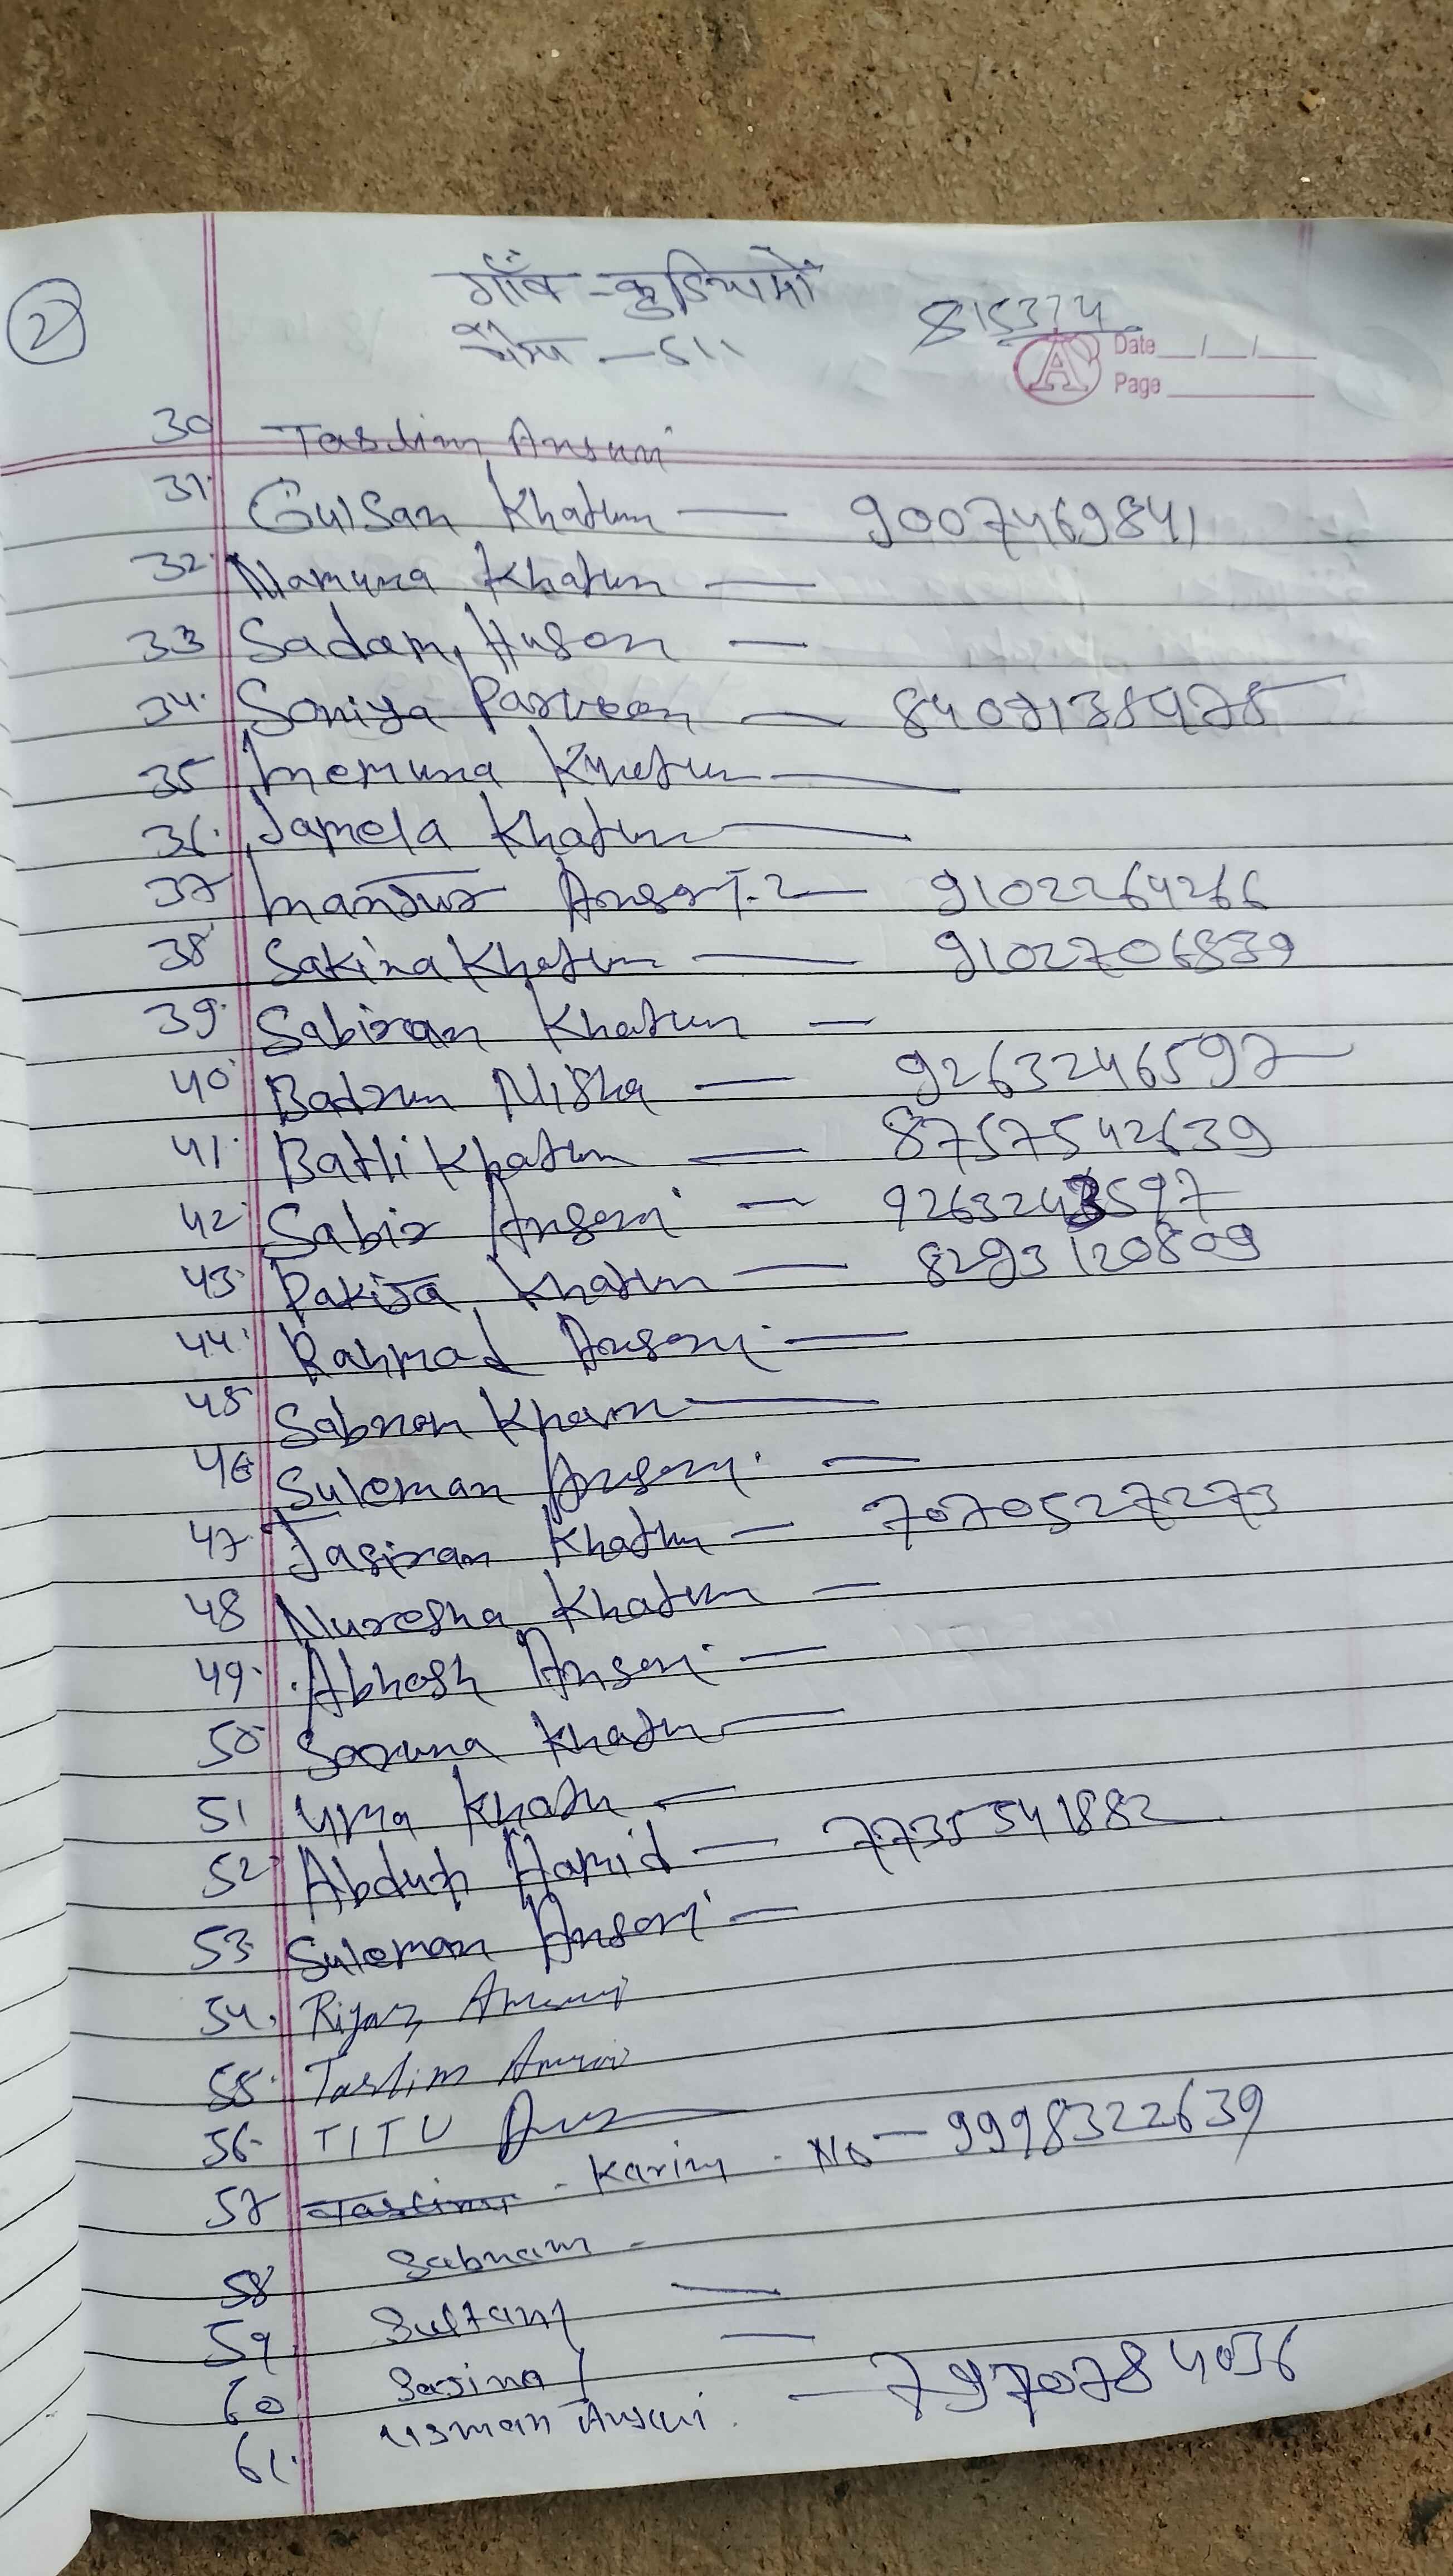 2
गाँव - कुडियामो
815374
Date __/__/__
A
Page
30 Taslim Ansari
31. Gulsan Khatun — 9007469841
32. Mamuna Khatun —
33 Sadam Huson —
34. Soniya Parveen —
35 Memuna Khatun —
36. Jamela Khatun —
37 Manjur Ansari-2 — 9102264266
38 Sakina Khatun — 9102706839
39. Sabiran Khatun —
40 Badrun Nisha — 9263246597
41. Batli Khatun — 8757542639
42. Sabir Ansari —
43. Pakija Khatun — 8293120809
44. Rahmad Ansari —
45 Sabnam Khatun —
46 Suleman Ansari —
47 Jasiran Khatun — 7070527273
48 Nuresha Khatun —
49. Abhash Ansari —
50 Saruna Khatun —
51 Uma Khatun —
52 Abdul Hamid — 7735541882
53. Suleman Ansari —
54. Riyaz Ansari
55. Taslim Ansari
56. TITU
57 Taslim - Karim - No — 9998322639
58 Sabnam -
59. Sultan —
60 Sajina —
61. Usman Ansari — 7970784036